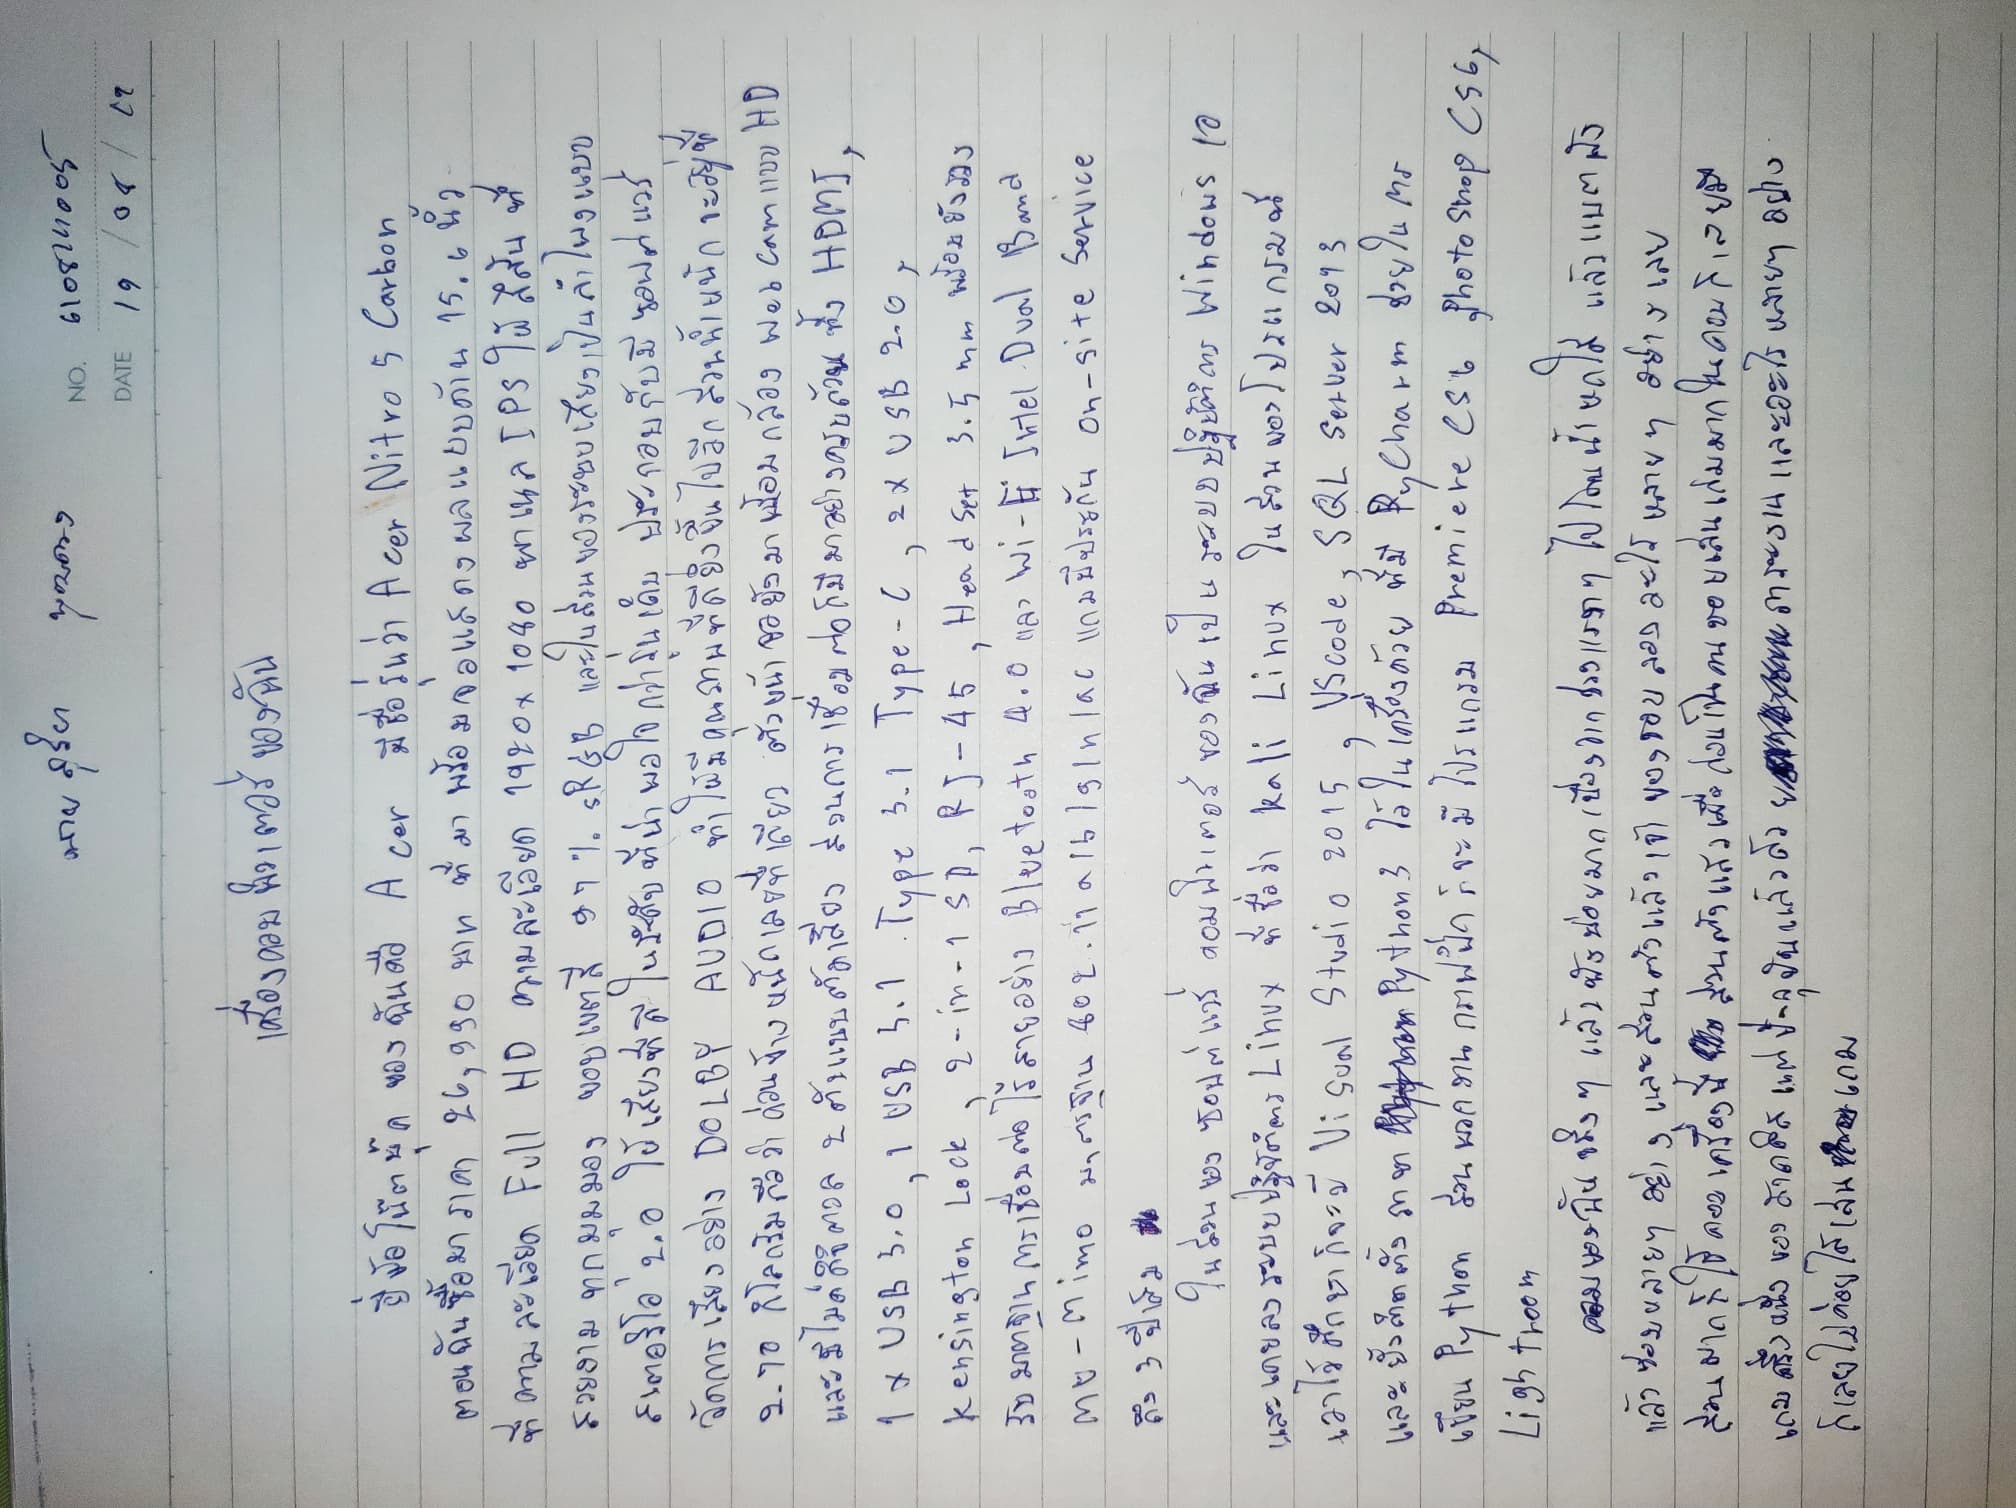 นายสุริยา
NO. 610811005
DATE 19 / 08 /
เครื่องคอมพิวเตอร์ของฉัน
ยี่ห้อโน๊ตบุ๊ค ของฉันคือ Acer มีชื่อรุ่นว่า Acer Nitro 5 Carbon
ตอนฉันซื้อมาราคา 26,990 บาท ที่มาพร้อมจอแสดงผลแบบด้าน 15.6 นิ้ว
ที่ความละเอียด Full HD ความละเอียด 1920x1080 พาแนล IPS ให้สีสันที่
สวยงาม ทุกมุมมอง ขอบเขตสี 97% sRGB และในส่วนของระบบเสียงเป็นลำโพงแบบ
สเตอริโอ 2.0 ให้เสียงที่ดีในระดับที่น่าพอใจกว่ารุ่นเดิม ประกอบกับมีซอฟต์แวร์
จัดการเสียงอย่าง DOLBY AUDIO ทำให้มีคุณภาพที่ดียิ่งขึ้นไปอีก ส่วนน้ำหนักจะอยู่ที่
2.70 กิโลกรัมถือว่าค่อนข้างหนักเลยทีเดียว ด้านหน้าจอยังมาพร้อมกล้อง web cam แบบ HD
และมีไมค์ดิจิตอล 2 ตัวแบบตัดเสียง ส่วนการเชื่อมต่อก็มีมาอย่างครบถ้วน ทั้ง HDMI,
1 x USB 3.0, 1 USB 3.1 Type 3.1 Type-C, 2x USB 2.0,
Kensington Lock, 2-in-1 SD, RJ-45, HeadSet 3.5 mm พร้อมยังรอง
รับมาตฐานการเชื่อมต่อไร้สายอย่าง Bluetooth 4.0 และ Wi-Fi Intel Dual Band
MU-Mimo มาตรฐาน 802.11a/b/g/n/ac แถมมีประกัน on-site Service
ถึง 3 ปีเต็ม
ในส่วนของ ซอฟต์แวร์ คอมพิวเตอร์ของฉันเป็น ระบบปฏิบัติการ Windows 10
และเคยลงระบบปฏิบัติการ Linux ที่ชื่อว่า Kali Linux ในส่วนของโปรแกรมที่
เอาไว้ศึกษาก็จะมี Visual Studio 2015, VScode, SQL Server 2013
และยังติดตั้งภาษา Python3 ไว้ในเครื่องด้วย ที่มี PyCharm ช่วยในการ
เขียน Python ส่วนพวกงานกราฟฟิกก็จะมีโปรแกรม Premiere CS6, PhotoShop CS6,
Lightroom
คอมของฉันจริงๆ แล้วพังบ่อยมากเนื่องจากช่วงแรกๆ ไปโดนน้ำหกใส่ แล้วแบตพัง
แล้วซ่อมหลายๆ อย่าง และส่วนตัวแล้วเจ้าของชอบลองอะไรหลายๆ อย่างเลย
ส่วนมากก็ใช้คอมเครื่องนี้ ส่วนตัวแล้วเมื่อก่อนเป็นคนชอบเล่นเกมมากในคอมก็เลยมี
เกมครึ่งหนึ่งของฮาดดิส แต่ปัจจุบันแล้วด้วยภาระงานและอะไรหลายๆ อย่าง
ก็เลยไม่ค่อยได้เล่นเกม